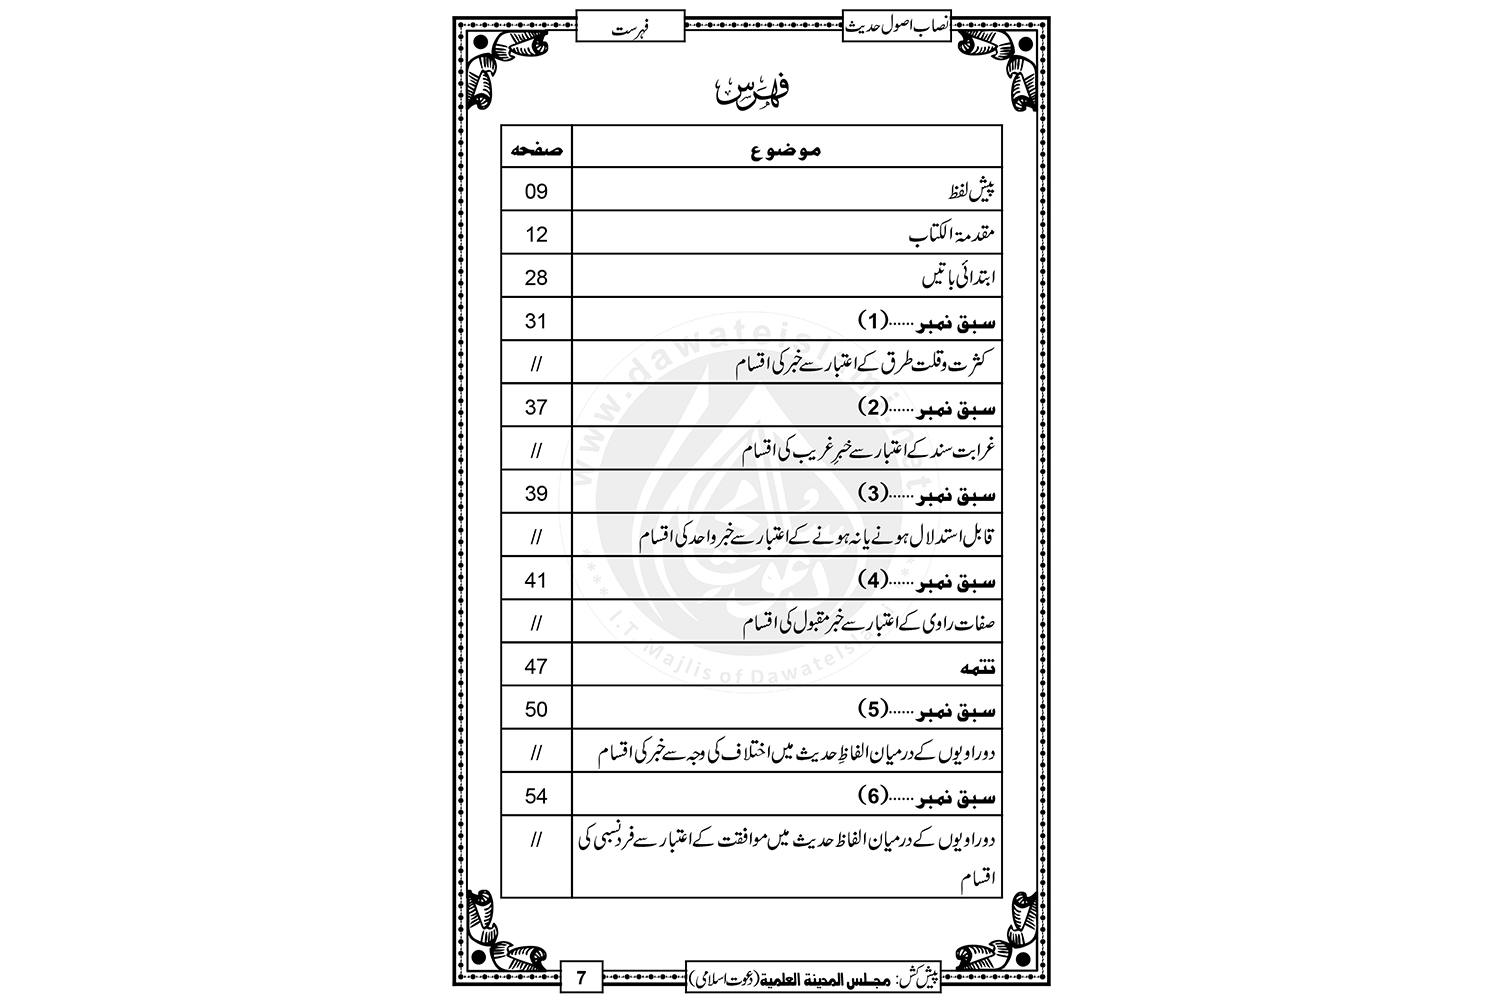 نصاب اصول حدیث
فہرست
فہرس
موضوع صفحه
پیش لفظ 09
مقدمۃ الکتاب 12
ابتدائی باتیں 28
سبق نمبر ......(1) 31
کثرت وقلت طرق کے اعتبار سے خبر کی اقسام //
سبق نمبر ......(2) 37
غرابت سند کے اعتبار سے خبرِ غریب کی اقسام //
سبق نمبر ......(3) 39
قابل استدلال ہونے یا نہ ہونے کے اعتبار سے خبر واحد کی اقسام //
سبق نمبر ......(4) 41
صفات راوی کے اعتبار سے خبر مقبول کی اقسام //
تتمه 47
سبق نمبر ......(5) 50
دو راویوں کے درمیان الفاظِ حدیث میں اختلاف کی وجہ سے خبر کی اقسام //
سبق نمبر ......(6) 54
دو راویوں کے درمیان الفاظ حدیث میں موافقت کے اعتبار سے فرد نسبی کی //
اقسام
www.dawateislami.net
I.T. Majlis of DawateIslami
پیش کش: مجلس المدینۃ العلمیۃ (دعوت اسلامی)
7